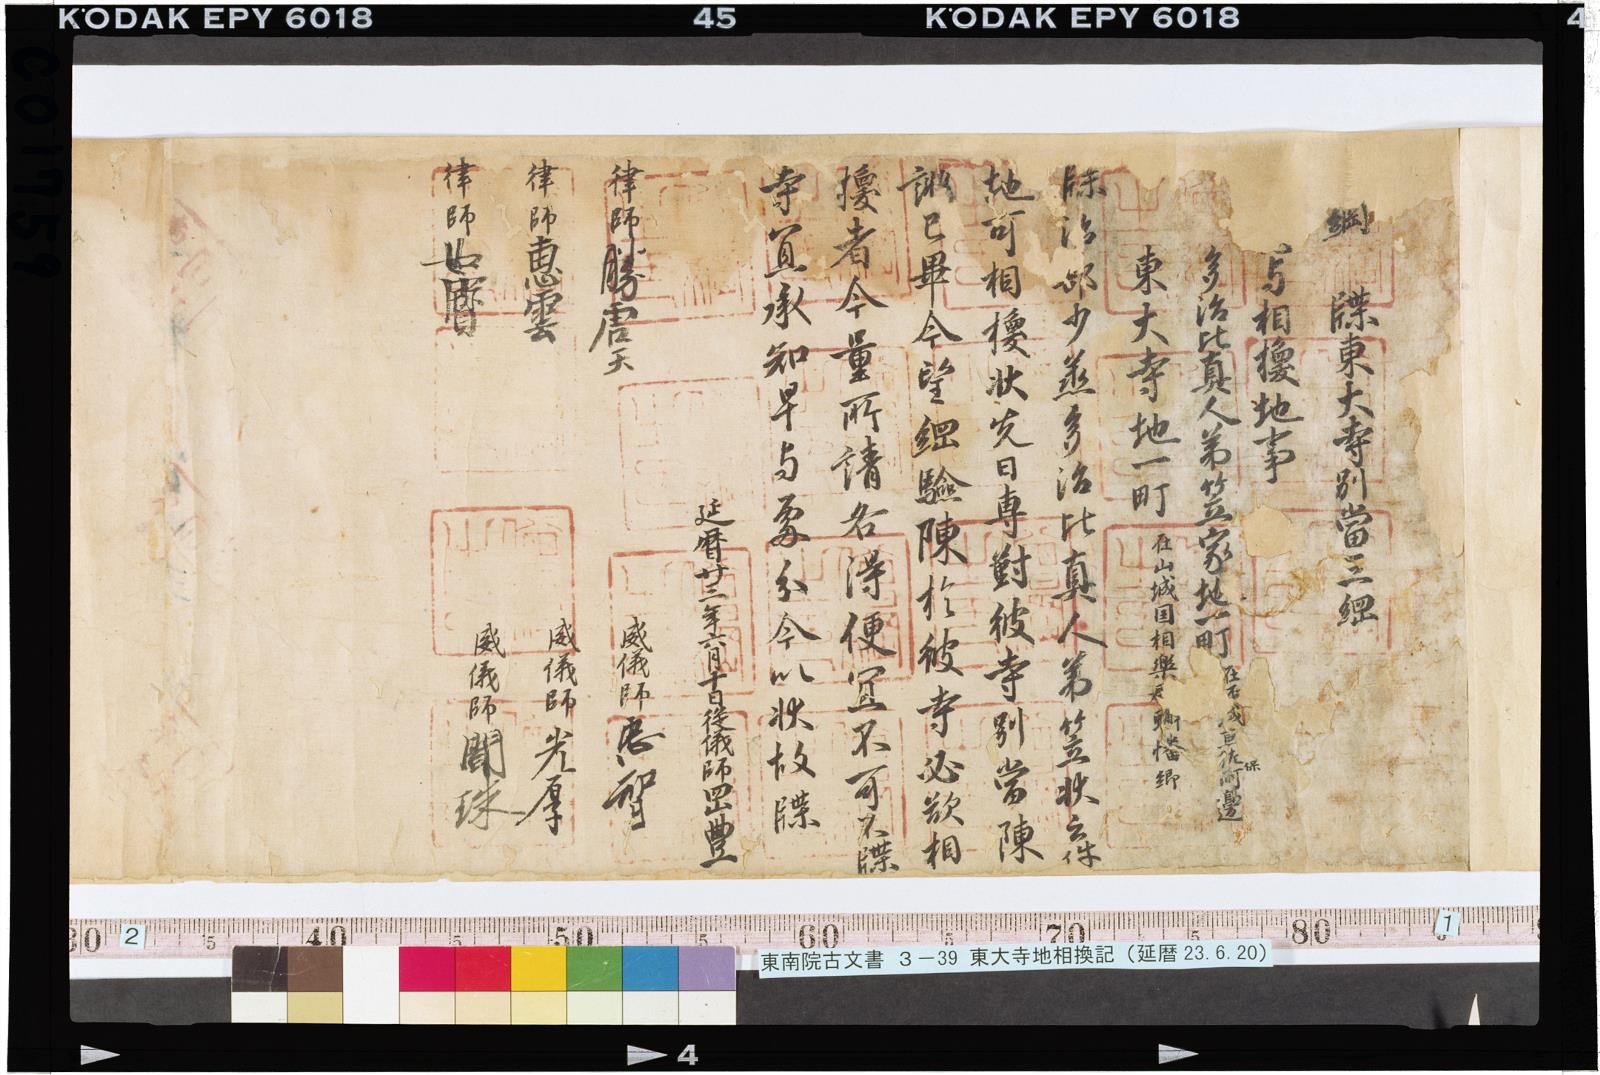 KODAK EPY 6018
45
KODAK EPY 6018
4
C01759
綱 牒東大寺別當三綱
与相換地事
多治比真人弟笠家地一町
在右京
佐保
東大寺地一町 在山城国相樂郡
幡郷
牒治部少丞多治比真人弟笠状云件
地可相換状先日専對彼寺別當陳
訴已畢今望綱驗陳於彼寺必欲相
換者今量所請各得便宜不可不牒
寺宜承知早与處分今以状故牒
延暦廿三年六月廿日従儀師豊
律師勝虞 威儀師
律師惠雲 威儀師光厚
律師如寶 威儀師聞珠
30 2 5 40 5 50 5 60 5 70 5 80 1
東南院古文書 3-39 東大寺地相換記 (延暦23.6.20)
4